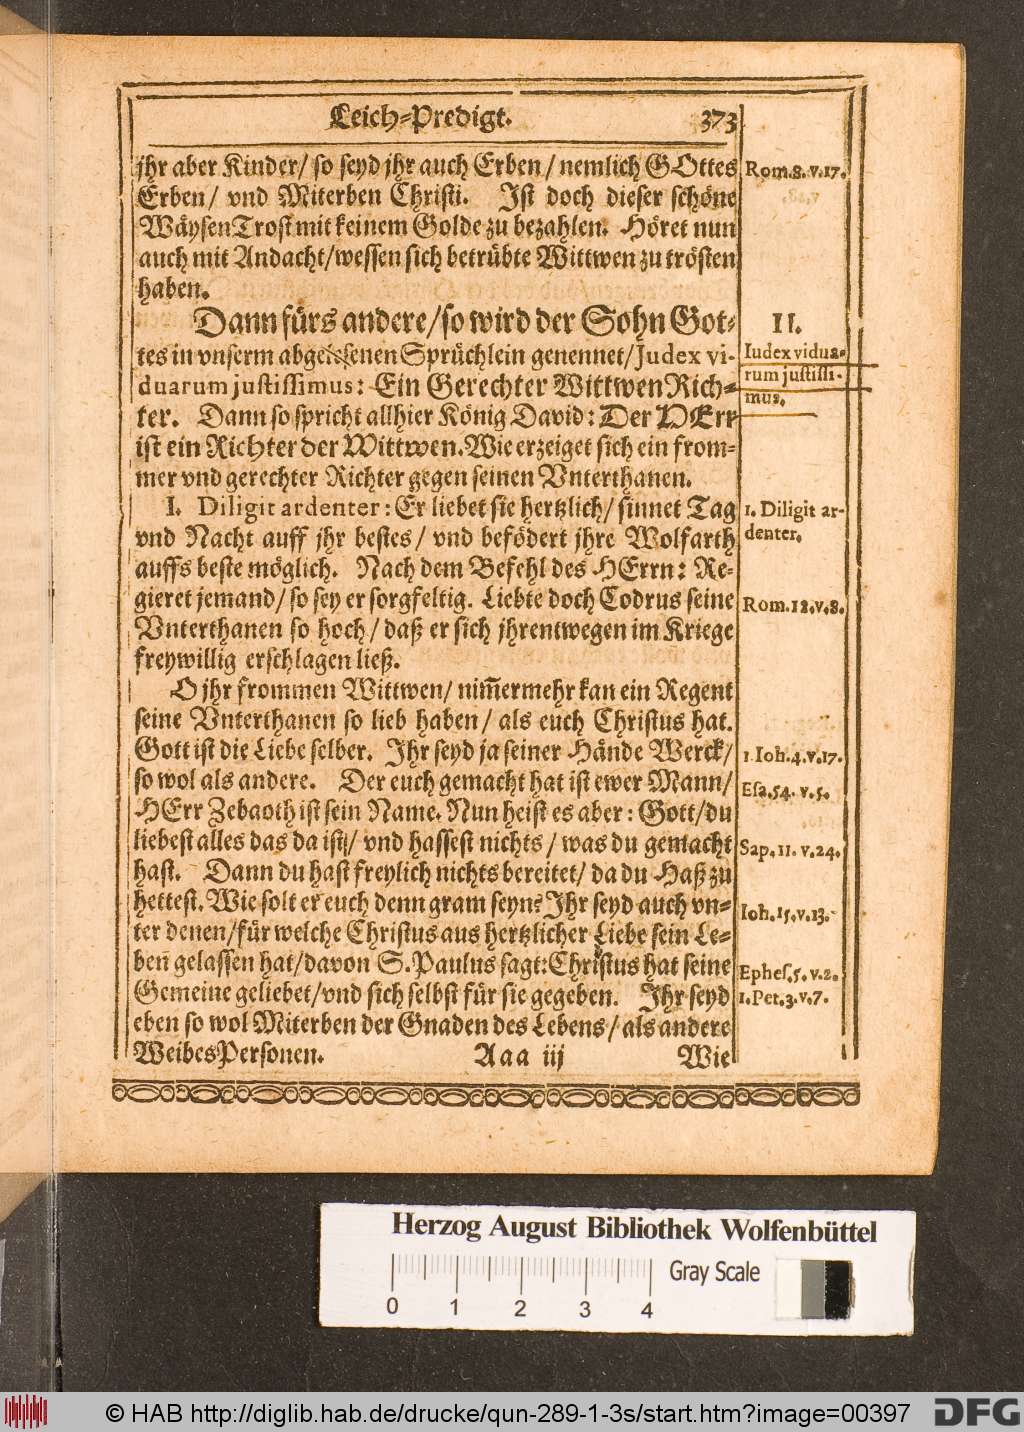 Leich-Predigt. 373
jhr aber Kinder/ so seyd jhr auch Erben/ nemlich GOttes
Erben/ vnd Miterben Christi. Ist doch dieser schöne
WäysenTrost mit keinem Golde zu bezahlen. Höret nun
auch mit Andacht/wessen sich betrübte Wittwen zu trösten
haben.
Dann fürs andere/so wird der Sohn Got-
tes in vnserm abgelesenen Sprüchlein genennet/Judex vi-
duarum justissimus: Ein Gerechter WittwenRich-
ter. Dann so spricht allhier König David: Der HErr
ist ein Richter der Wittwen. Wie erzeiget sich ein from-
mer vnd gerechter Richter gegen seinen Vnterthanen.
I. Diligit ardenter: Er liebet sie hertzlich/ sinnet Tag
vnd Nacht auff jhr bestes/ vnd befödert jhre Wolfarth
auffs beste möglich. Nach dem Befehl des HErrn: Re-
gieret jemand/ so sey er sorgfeltig. Liebte doch Codrus seine
Vnterthanen so hoch/ daß er sich jhrentwegen im Kriege
freywillig erschlagen ließ.
O jhr frommen Wittwen/ nim̅ermehr kan ein Regent
seine Vnterthanen so lieb haben/ als euch Christus hat.
Gott ist die Liebe selber. Ihr seyd ja seiner Hände Werck/
so wol als andere. Der euch gemacht hat ist ewer Mann/
HErr Zebaoth ist sein Name. Nun heist es aber: Gott/du
liebest alles das da ist/ vnd hassest nichts/ was du gemacht
hast. Dann du hast freylich nichts bereitet/ da du Haß zu
hettest. Wie solt er euch denn gram seyn? Ihr seyd auch vn-
ter denen/für welche Christus aus hertzlicher Liebe sein Le-
ben̅ gelassen hat/davon S. Paulus sagt: Christus hat seine
Gemeine geliebet/vnd sich selbst für sie gegeben. Ihr seyd
eben so wol Miterben der Gnaden des Lebens/ als andere
WeibesPersonen. Aaa iij Wie
Rom. 8. v. 17.
II.
Iudex vidua-
rum justissi-
mus.
1. Diligit ar-
denter.
Rom. 12. v. 8.
1 Ioh. 4. v. 17.
Esa. 54. v. 5.
Sap. 11. v. 24.
Ioh. 15. v. 13.
Ephes. 5. v. 2.
1. Pet. 3. v. 7.
Herzog August Bibliothek Wolfenbüttel
0 1 2 3 4 Gray Scale
© HAB http://diglib.hab.de/drucke/qun-289-1-3s/start.htm?image=00397 DFG